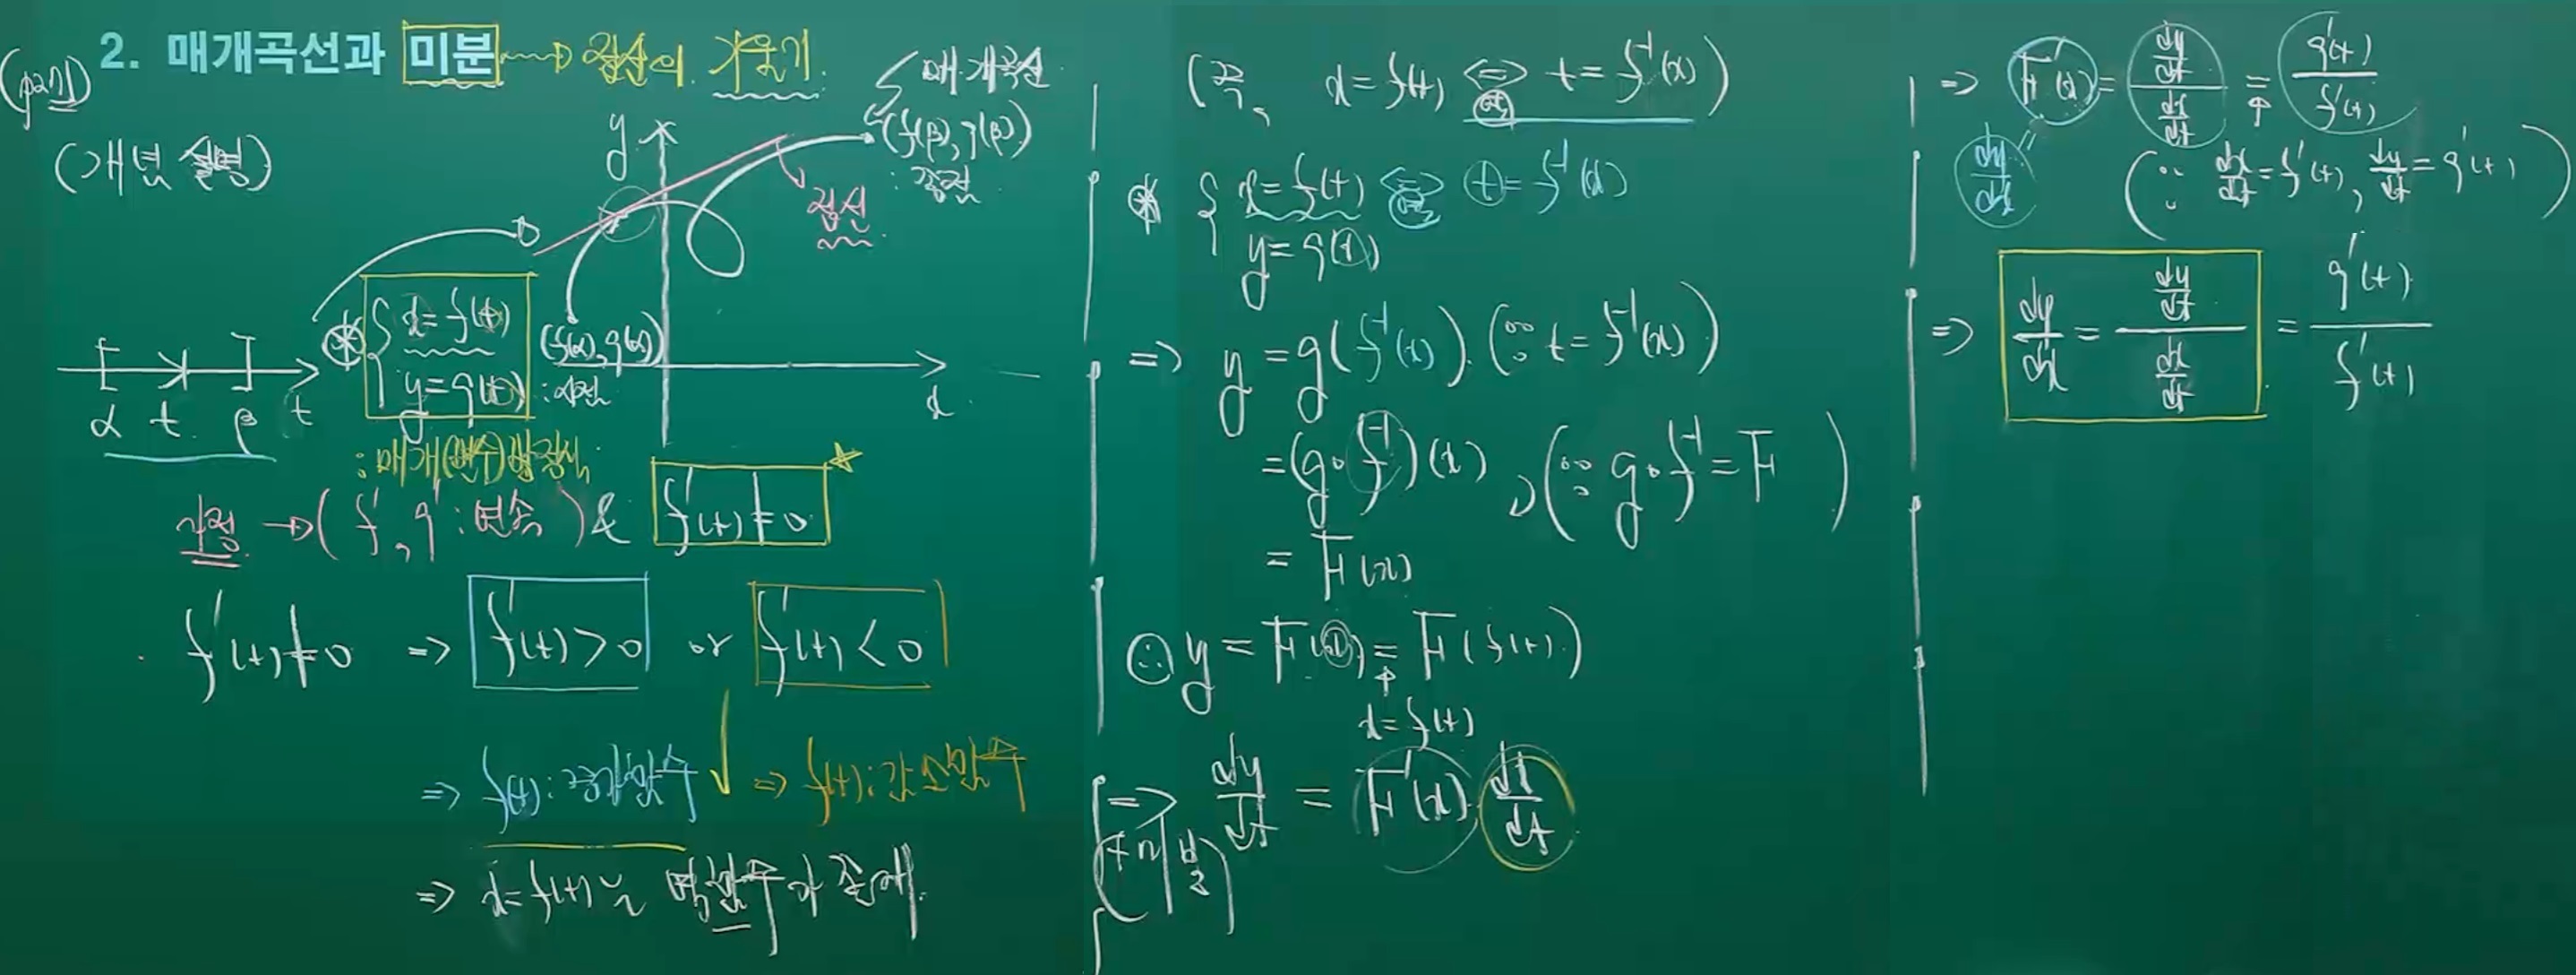 2. 매개곡선과 미분 ⇝ 접선의 기울기.
(개념 설명)
매개곡선
(f(β), g(β))
: 종점
접선
y
x
(f(α), g(α))
: 시점
α t β t
⊛ { x = f(t)
y = g(t)
: 매개(변수)방정식
가정 → (f', g' : 연속) & f'(t) ≠ 0 ☆
· f'(t) ≠ 0 ⇒ f'(t) > 0 or f'(t) < 0
⇒ f(t) : 증가함수 ⇒ f(t) : 감소함수
⇒ x = f(t)는 역함수가 존재.
(즉, x = f(t) ⇔ t = f⁻¹(x))
⊛ { x = f(t) ⇔ t = f⁻¹(x)
y = g(t)
⇒ y = g(f⁻¹(x)). (∵ t = f⁻¹(x))
= (g∘f⁻¹)(x), (∵ g∘f⁻¹ = F)
= F(x)
∴ y = F(x) = F(f(t))
↑
x = f(t)
⇒ dy/dt = F'(x) · dx/dt
⇒ F'(x) = (dy/dt)/(dx/dt) = g'(t)/f'(t)
dy/dx
(∵ dx/dt = f'(t), dy/dt = g'(t))
⇒ dy/dx = (dy/dt)/(dx/dt) = g'(t)/f'(t)